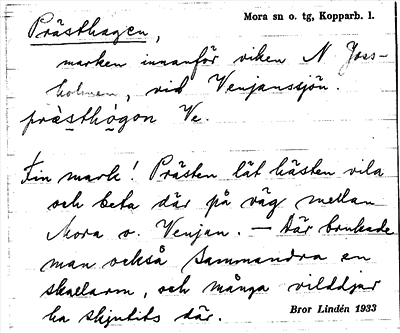 Mora sn o. tg, Kopparb. l.
Prästhagen,
marken innanför viken N Joss-
holmen, vid Venjanssjön.
prästhɷgon Ve.
Fin mark! Prästen lät hästen vila
och beta där på väg mellan
Mora o. Venjan. — Där brukade
man också sammandra en
skallarm, och många vilddjur
ha skjutits där.
Bror Lindén 1933